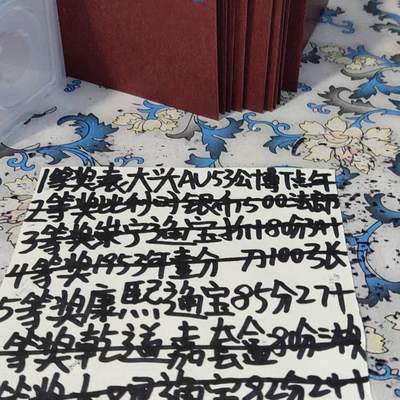 1等奖袁大头AU53公博
2等奖比利时银币500法郎
3等奖崇宁通宝折十80分3十
4等奖1953年壹分一刀100张
5等奖康熙通宝85分2十
等奖乾道嘉套盒80分
等奖大 通宝82分2十